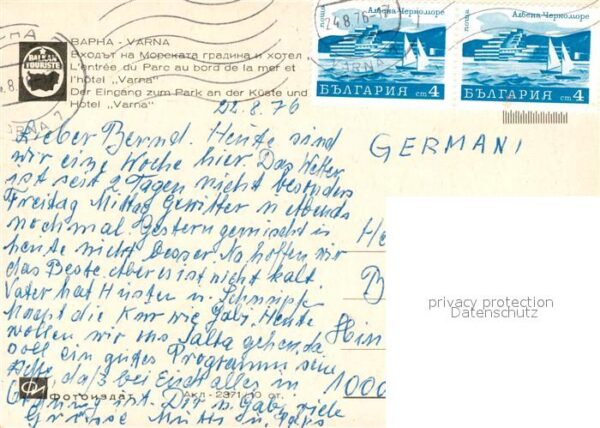 ВАРНА - VARNA
Входът на Морската градина и хотел
L'entrée du Parc au bord de la mer et
l'hôtel „Varna"
Der Eingang zum Park an der Küste und
Hotel „Varna"
BALKAN
TOURISTE
поща Албена-Черноморе
БЪЛГАРИЯ ст 4
поща Албена-Черноморе
БЪЛГАРИЯ ст 4
24.8.76-
22.8.76
Lieber Bernd. Heute sind
wir eine Woche hier. Das Wetter
ist seit 2 Tagen nicht besonders
Freitag Mittag Gewitter u. abends
nochmal. Gestern gemischt u.
heute nicht besser. Na hoffen wir
das Beste, aber es ist nicht kalt.
Vater hat Husten u. Schnupfen
macht die Kur wie Gabi. Heute
wollen wir ins gehen, da
soll ein gutes Programm sein
Hoffe, daß bei Euch alles in
Ordnung ist. Dir u. Gabi viele
Grüsse Mutti u. Paps
GERMANI
He
B
Hin
1000
privacy protection
Datenschutz
Фотоиздат
Акл - 2371 - 10 от.